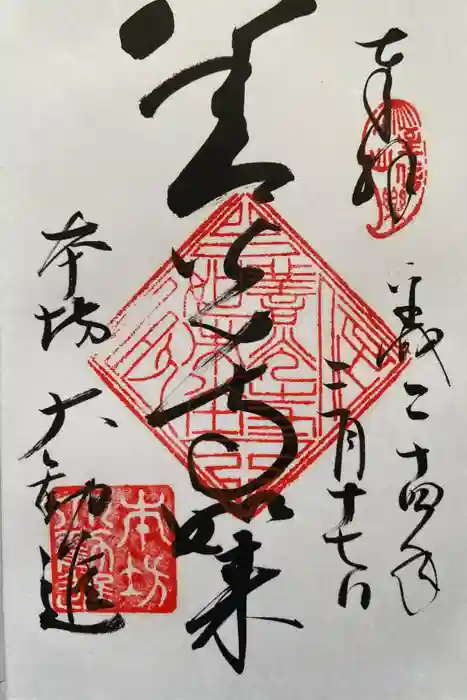 奉拝
平成二十四年
三月十七日
善光寺如来
本坊 大勧進
本坊